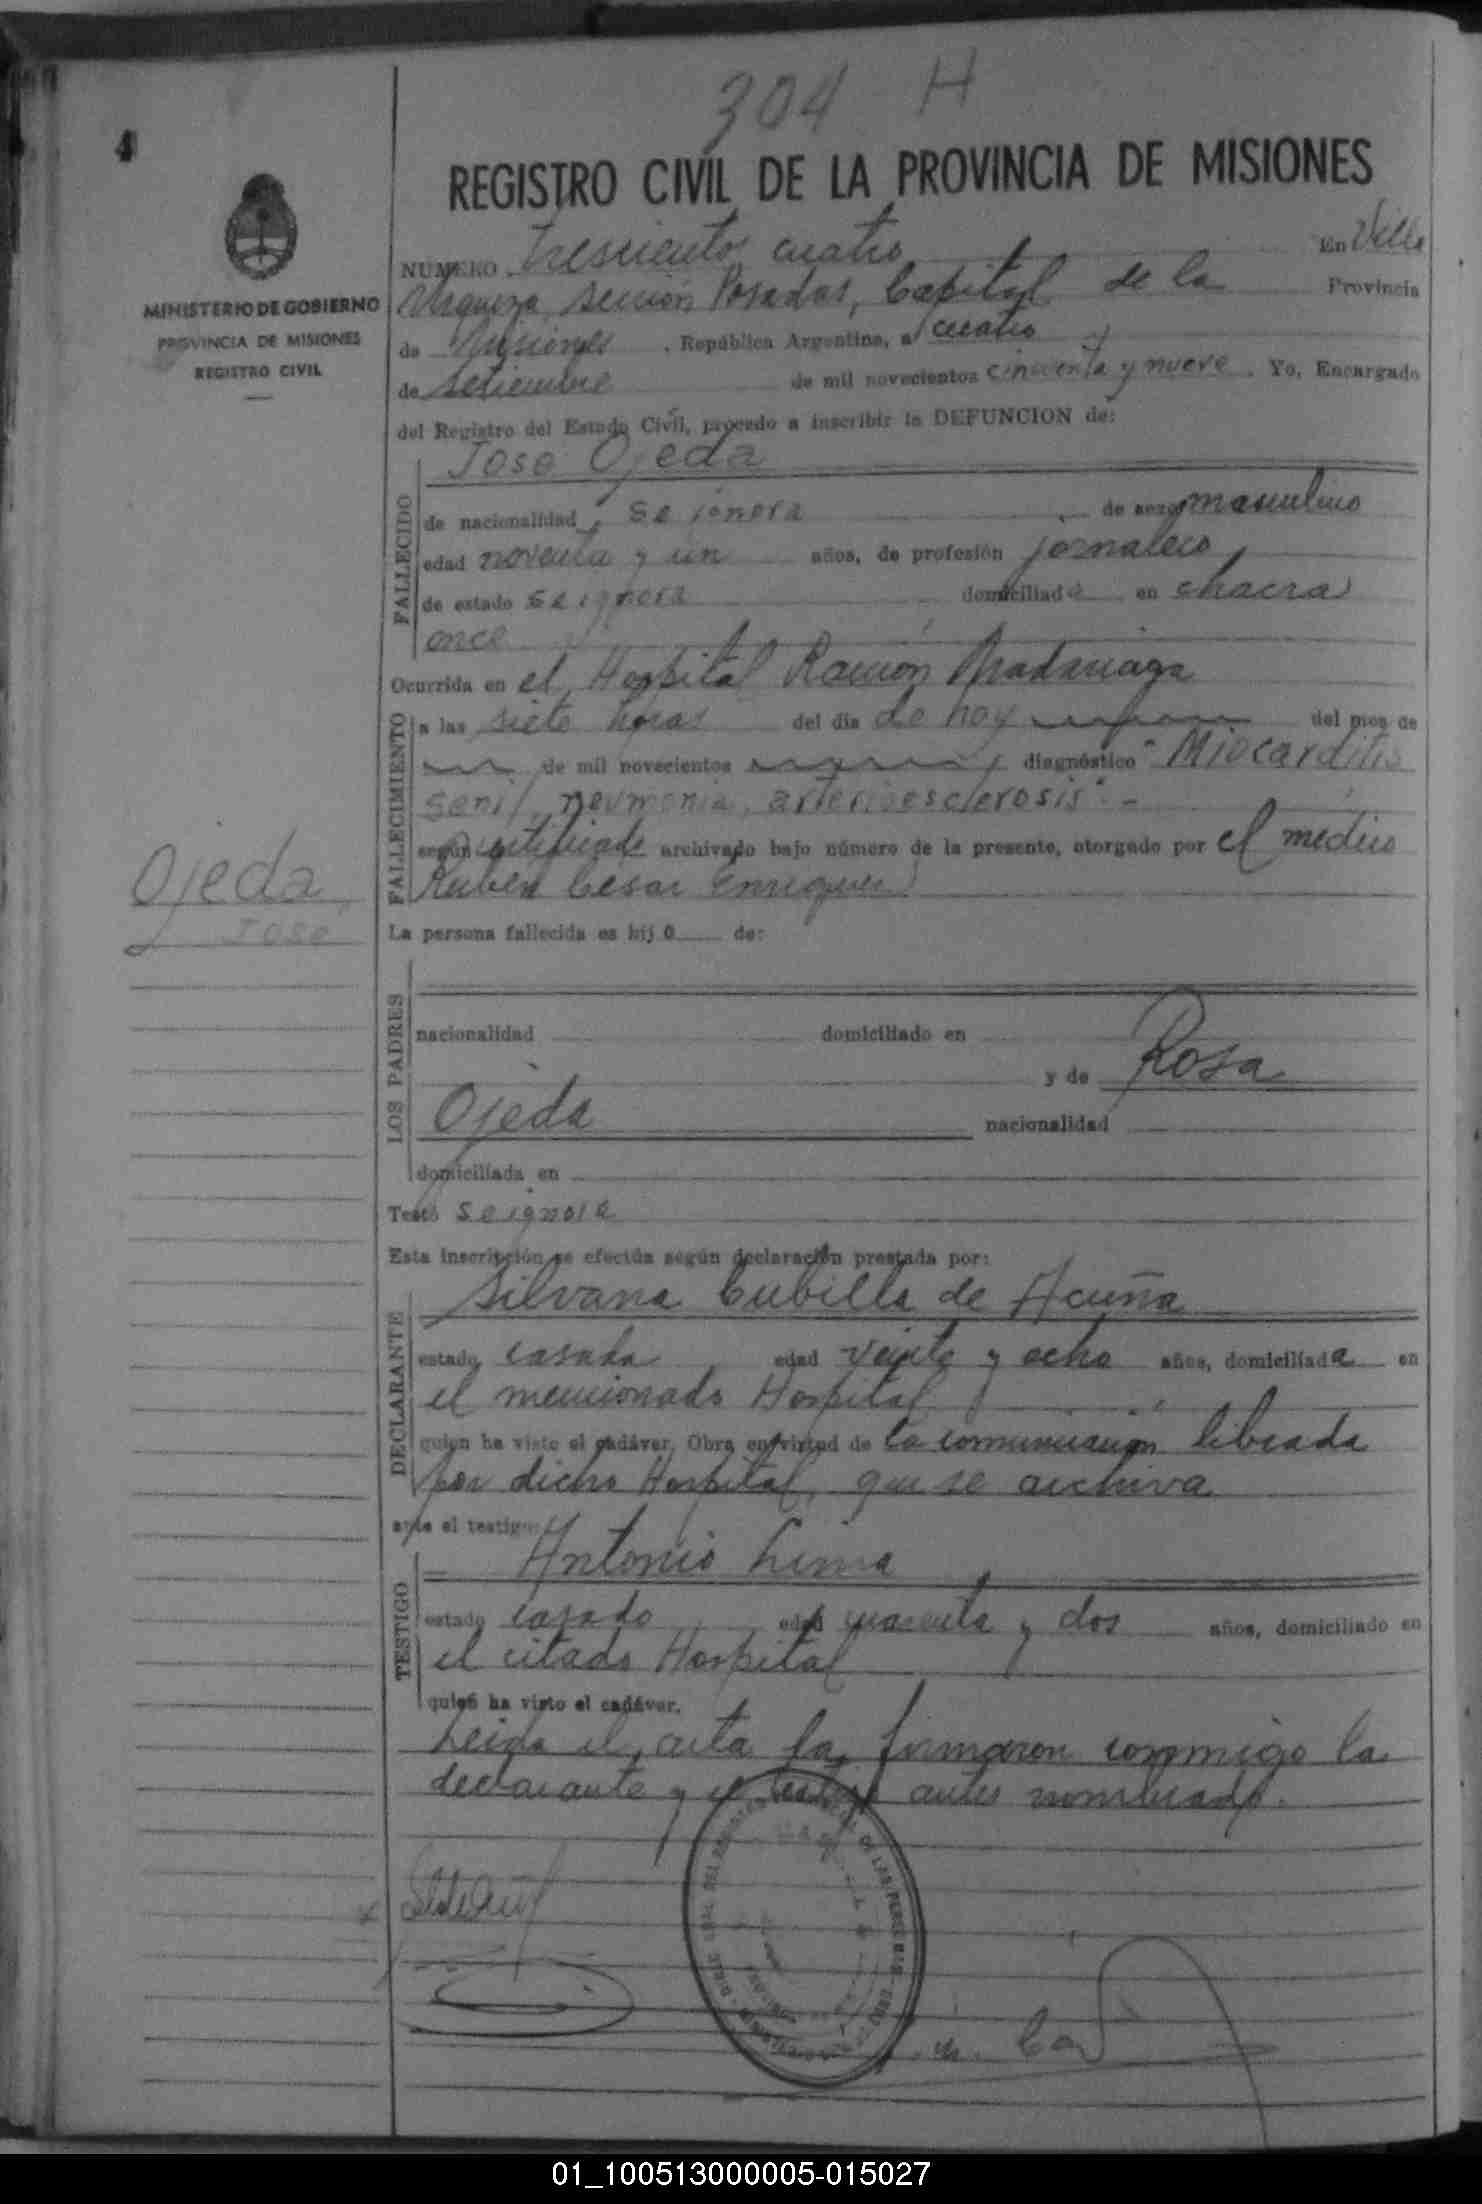 304 H
4
REGISTRO CIVIL DE LA PROVINCIA DE MISIONES
MINISTERIO DE GOBIERNO
PROVINCIA DE MISIONES
REGISTRO CIVIL
NUMERO Trescientos cuatro En Villa
Urquiza sección Posadas, Capital de la Provincia
de Misiones, República Argentina, a cuatro
de setiembre de mil novecientos cincuenta y nueve. Yo, Encargado
del Registro del Estado Civil, procedo a inscribir la DEFUNCION de:
Jose Ojeda
FALLECIDO
de nacionalidad se ignora de sexo masculino
edad noventa y un años, de profesión jornalero
de estado se ignora domiciliado en chacra
once
Ocurrida en el Hospital Ramón Madariaga
FALLECIMIENTO
a las siete horas del día de hoy del mes de
de mil novecientos diagnóstico "Miocarditis
senil, neumonia, arterioesclerosis".-
según certificado archivado bajo número de la presente, otorgado por el medico
Ruben Cesar Enriquez
Ojeda,
Jose
La persona fallecida es hijo de:
LOS PADRES
nacionalidad domiciliado en
y de Rosa
Ojeda nacionalidad
domiciliada en
Testó se ignora
Esta inscripción se efectúa según declaración prestada por:
Silvana Cubilla de Acuña
DECLARANTE
estado casada edad veinte y ocho años, domiciliada en
el mencionado Hospital
quien ha visto el cadáver. Obra en virtud de la comunicación librada
por dicho Hospital, que se archiva
ante el testigo:
Antonio Lima
TESTIGO
estado casado edad cuarenta y dos años, domiciliado en
el citado Hospital
quien ha visto el cadáver.
Leida el acta la firmaron conmigo la
declarante y el testigo antes nombrado.
01_100513000005-015027